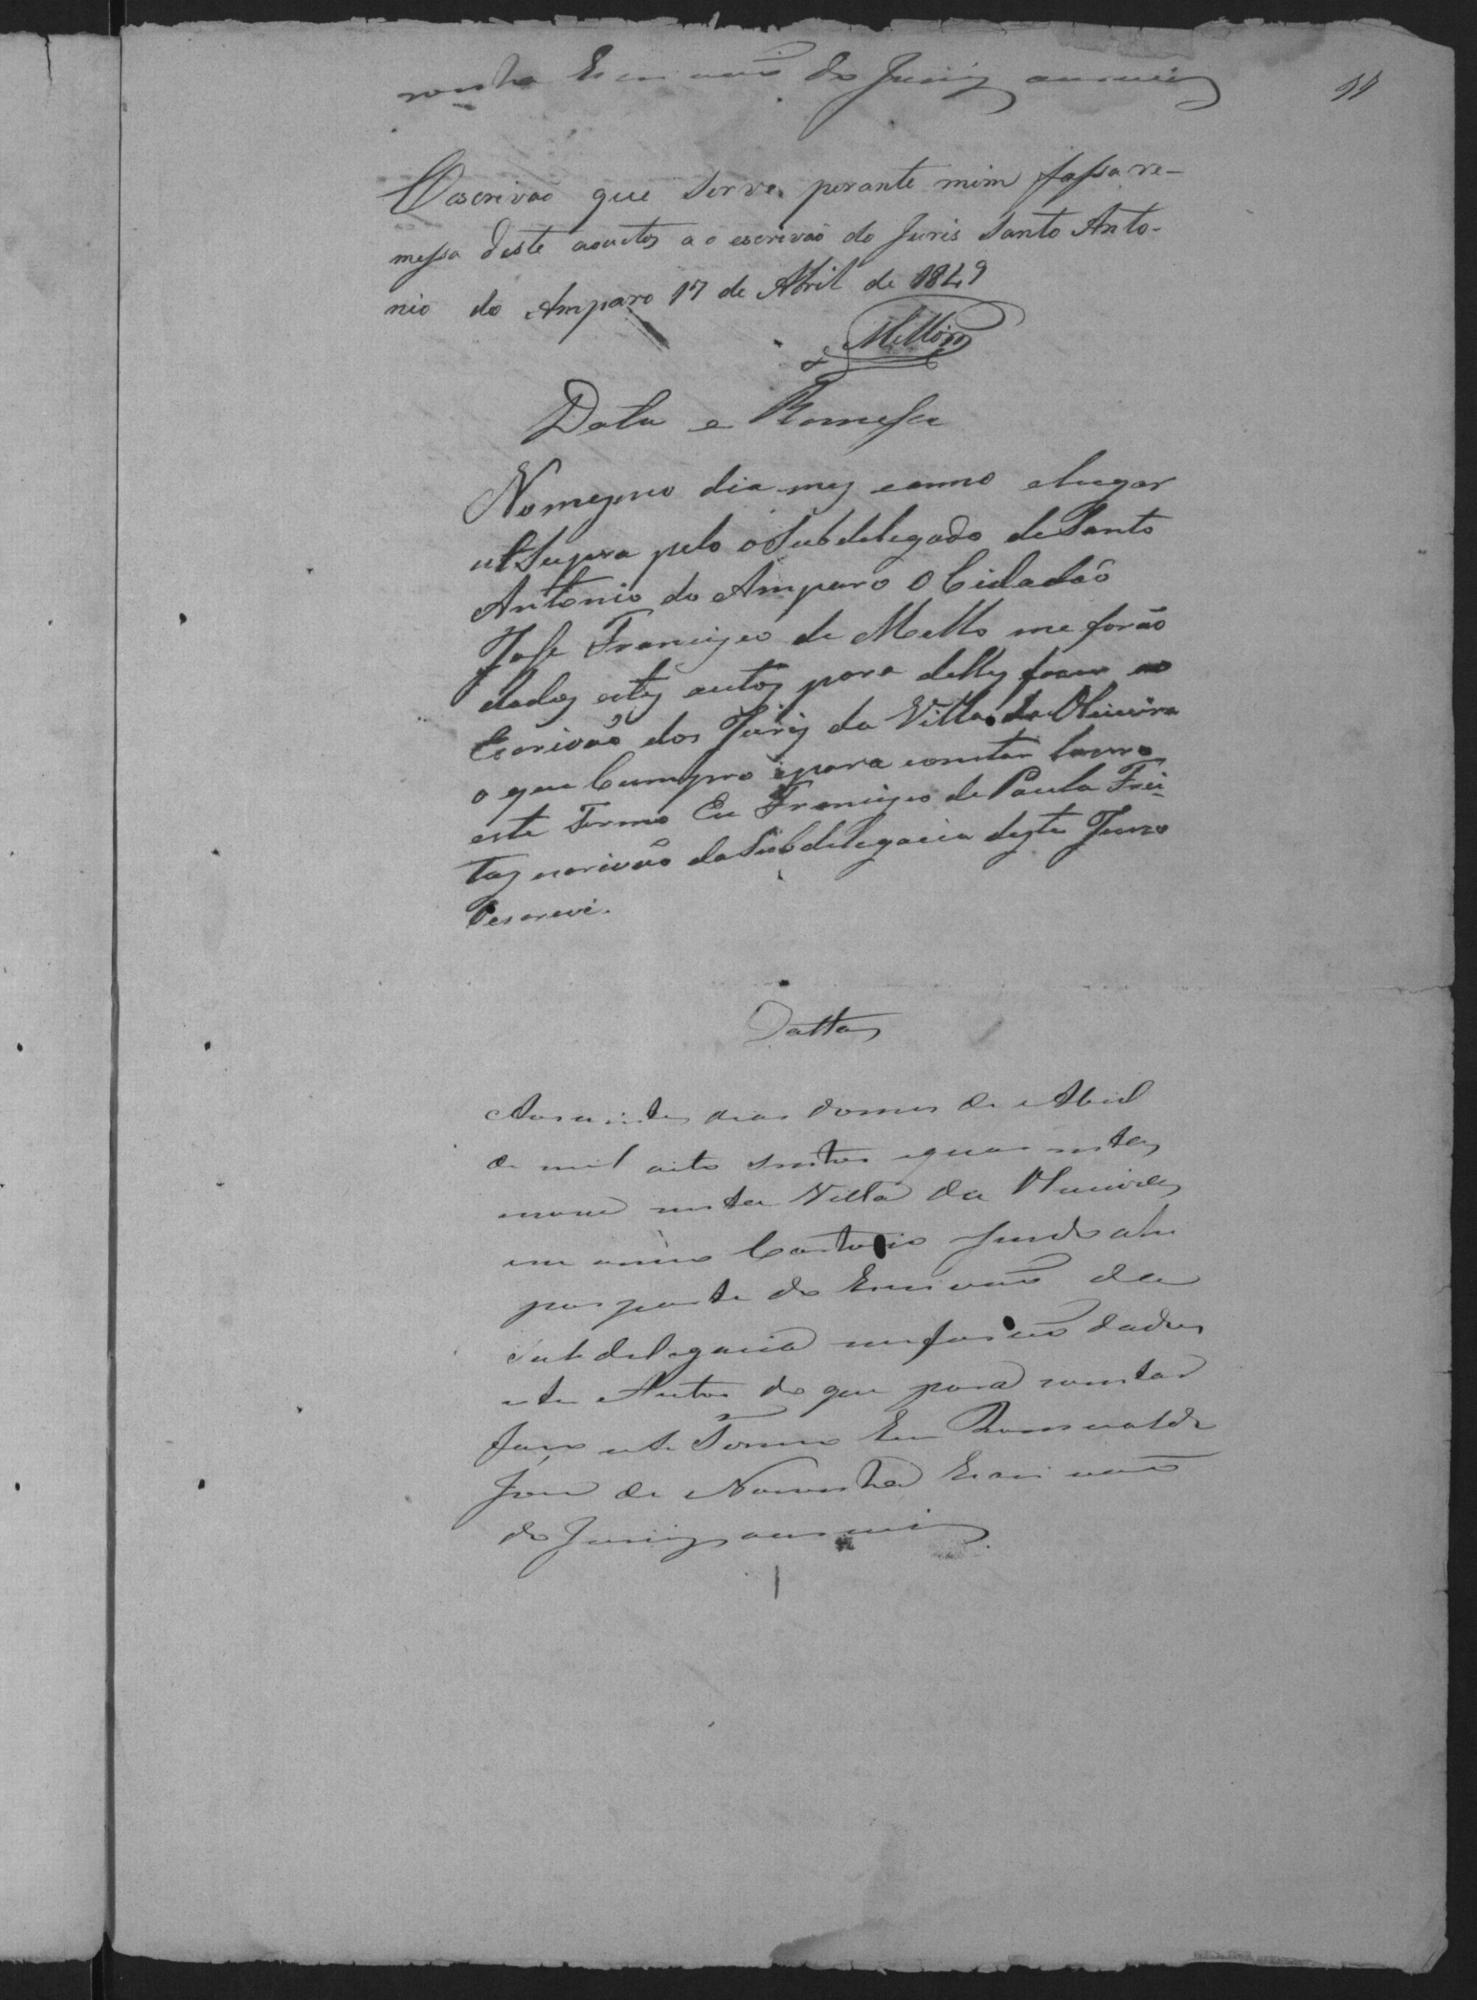 ronha Escrivaõ do Juriz
11
O escrivaõ que serve perante mim fassa re-
messa deste aoutos ao escrivaõ do Juris Santo Anto-
nio do Amparo 17 de Abril de 1849
Mello
Data e Remessa
No mesmo dia mez eanno elugar
ut Supra pelo o Subdelegado de Santo
Antonio do Amparo o Cidadaõ
Jose Francisco de Mello me foraõ
dados estes autos para delles fazer ao
Escrivaõ dos Juris da Villa da Oliveira
o que Cumpro epara constar lavro
este Termo Eu Francisco de Paula Frei-
tas escrivaõ da Subdelegacia deste Juizo
Oescrevi.
Datta
Aos vinte dias domes de Abril
de mil oito sentos equarenta
nove nesta Villa da Oliveira
em meu Cartorio sendo ahi
por parte do Escrivaõ da
Subdelegacia mefoi dados
este Autos do que para constar
faso este Termo Eu
José de Noronha Escrivaõ
do Juriz